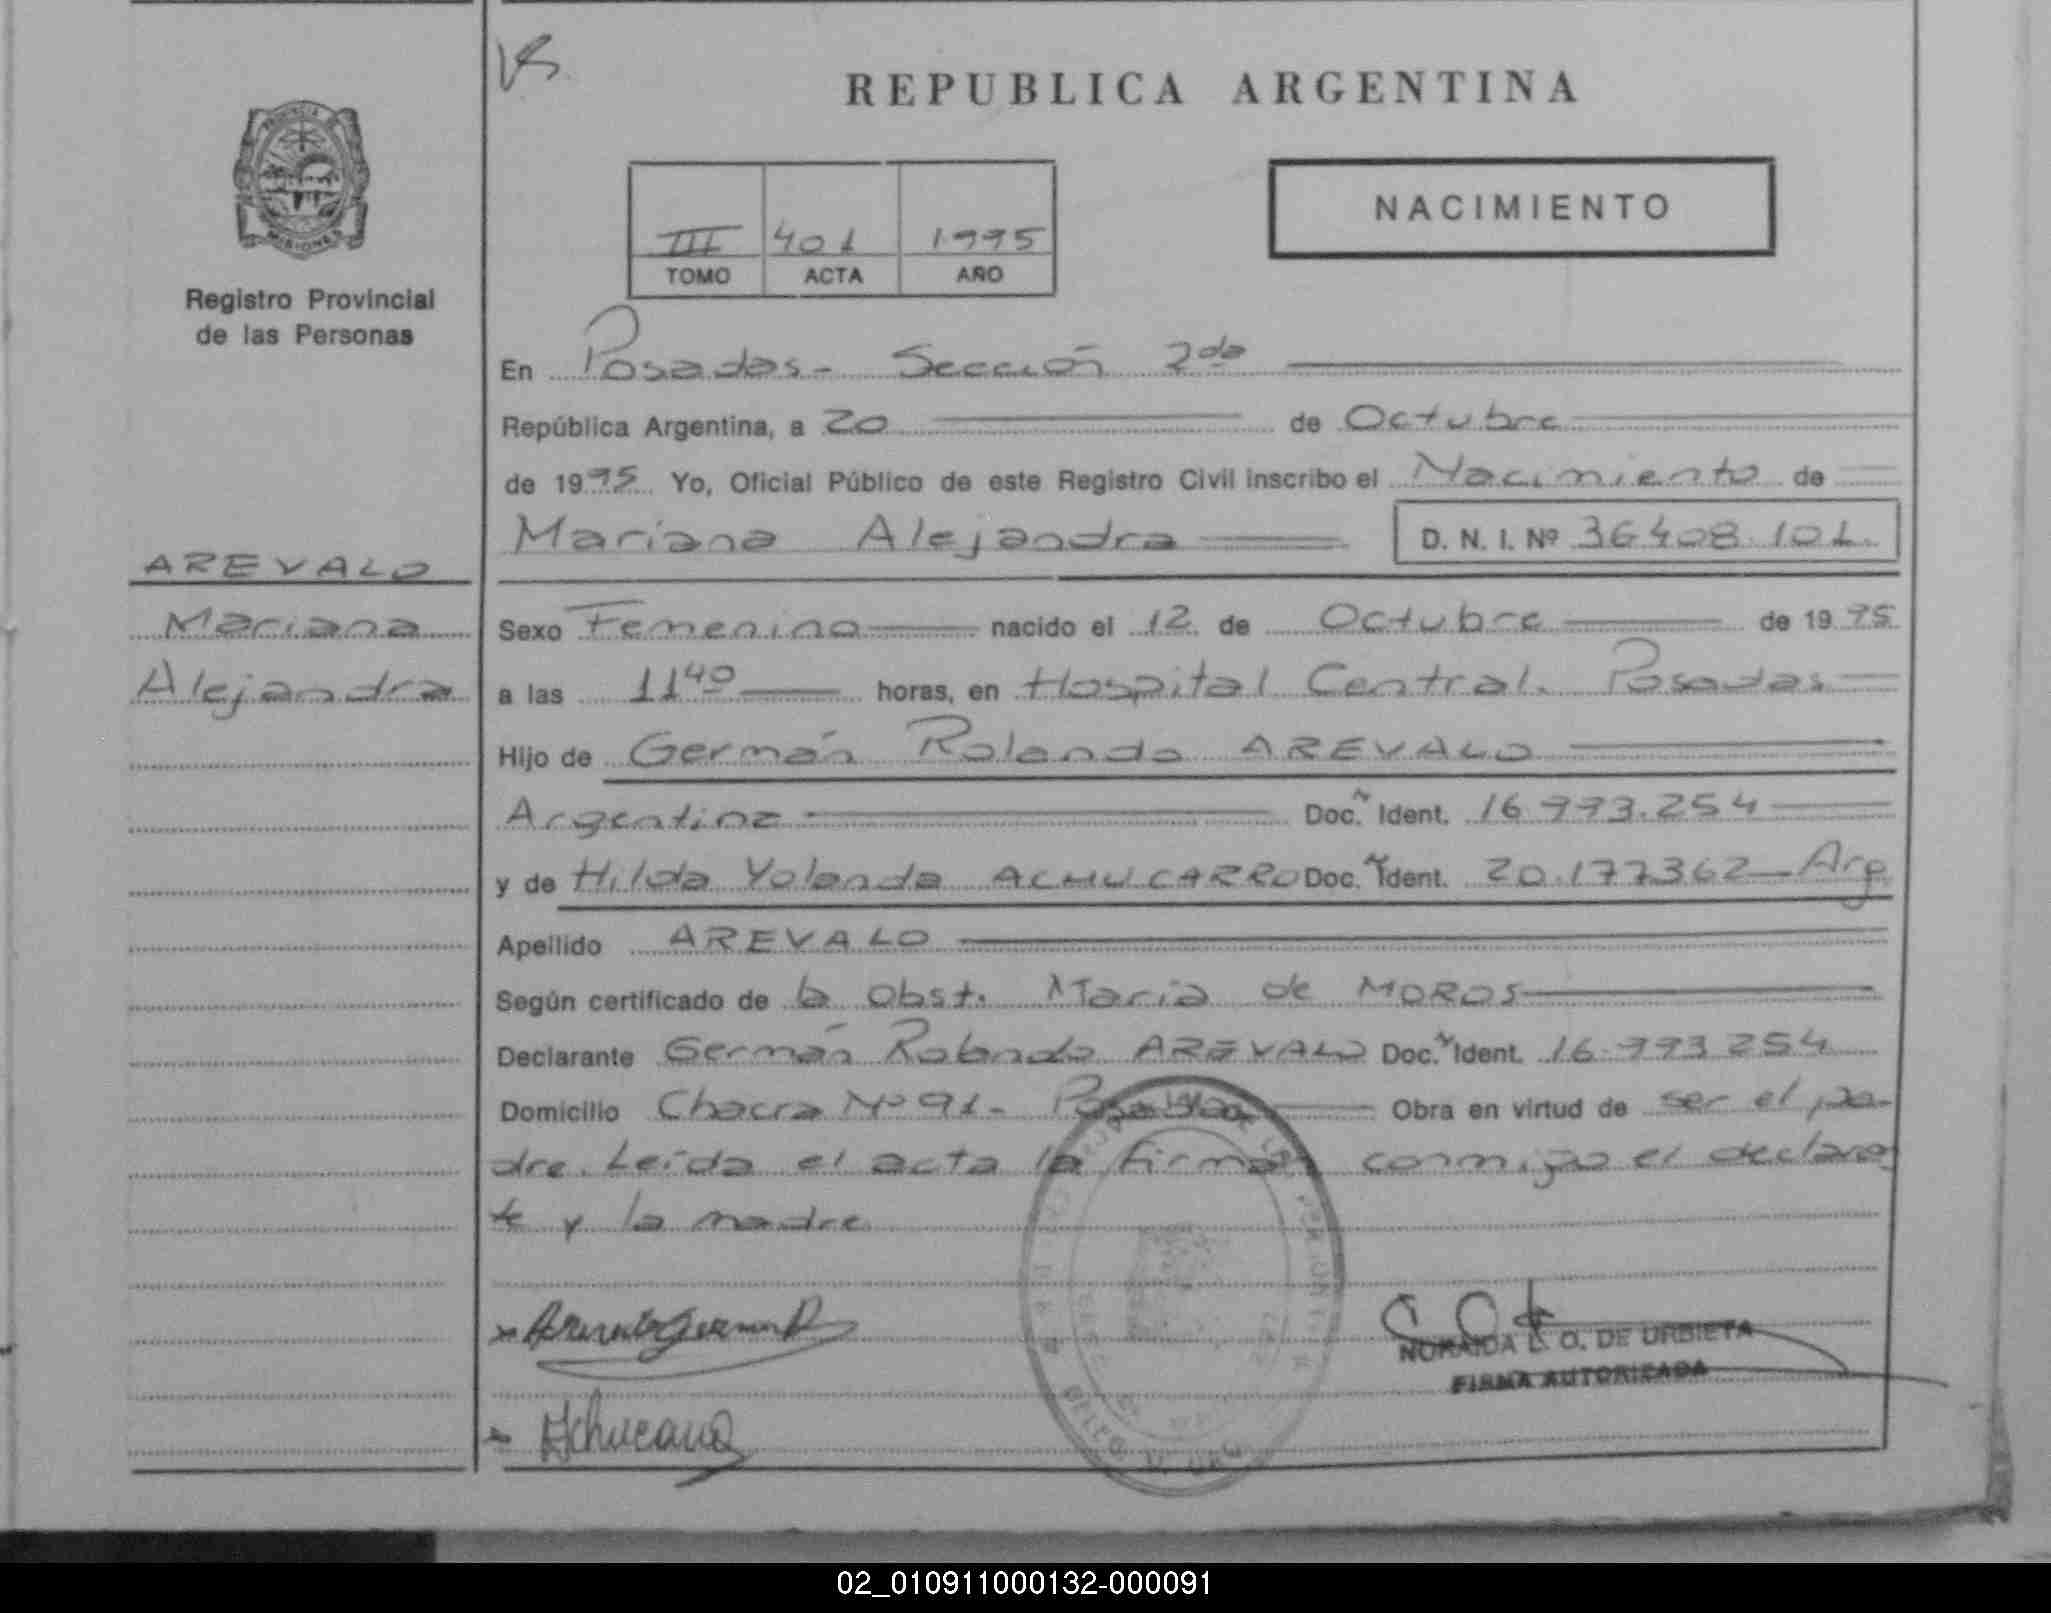 REPUBLICA ARGENTINA
PROVINCIA
MISIONES
Registro Provincial
de las Personas
III 401 1995
TOMO ACTA AÑO
NACIMIENTO
En Posadas - Sección 2da
República Argentina, a 20 de Octubre
de 1995 Yo, Oficial Público de este Registro Civil inscribo el Nacimiento de
Mariana Alejandra D. N. I. Nº 36408.101.
AREVALO
Mariana
Alejandra
Sexo Femenino nacido el 12 de Octubre de 1995
a las 11 40 horas, en Hospital Central. Posadas
Hijo de Germán Rolando AREVALO
Argentina Doc. Ident. 16.993.254
y de Hilda Yolanda ACHUCARRO Doc. Ident. 20.177362 - Arg.
Apellido AREVALO
Según certificado de la Obst. María de MOROS
Declarante Germán Rolando AREVALO Doc. Ident. 16.993.254
Domicilio Chacra Nº 91 - Posadas Obra en virtud de ser el pa-
dre. Leída el acta la firman conmigo el declaran
te y la madre
NORAIDA L. O. DE URBIETA
FIRMA AUTORIZADA
02_010911000132-000091